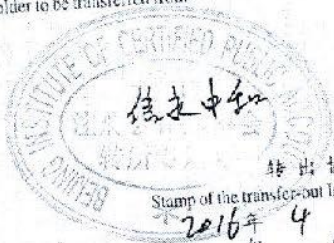 older to be transferred from
BEIJING INSTITUTE OF CERTIFIED PUBLIC ACCOUNTANTS
信永中和
转出
Stamp of the transfer-out I
2016年 4